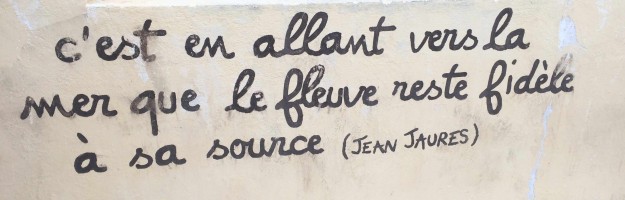 c'est en allant vers la
mer que le fleuve reste fidèle
à sa source (JEAN JAURES)